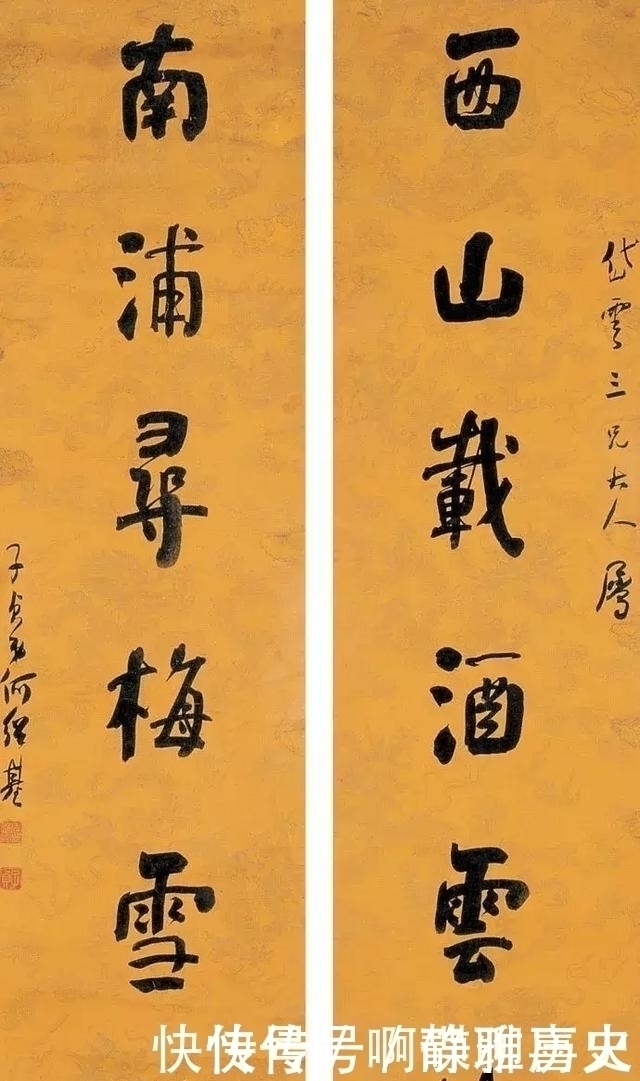 岱雲三兄大人屬
西山載酒雲
南浦尋梅雪
子貞弟何紹基
快传号